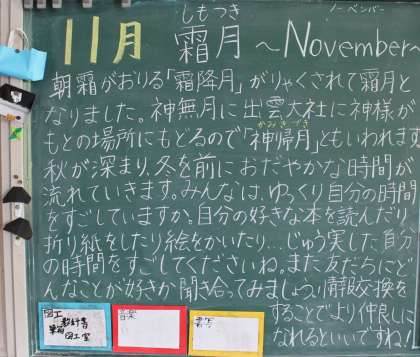 しもつき
ノーベンバー
11月 霜月 ～November～
朝霜がおりる「霜降月」がりゃくされて霜月と
なりました。神無月に出雲大社に神様が
かみきづき
もとの場所にもどるので「神帰月」ともいわれます
秋が深まり、冬を前におだやかな時間が
流れていきます。みんなは、ゆっくり自分の時間
をすごしていますか。自分の好きな本を読んだり
折り紙をしたり絵をかいたり…じゅう実した自分
の時間をすごしてくださいね。また友だちにど
んなことが好きか聞き合ってみましょう!情報交換を
することでより仲良しに
なれるといいですね!
図工
教科書
図工室
音楽
書写